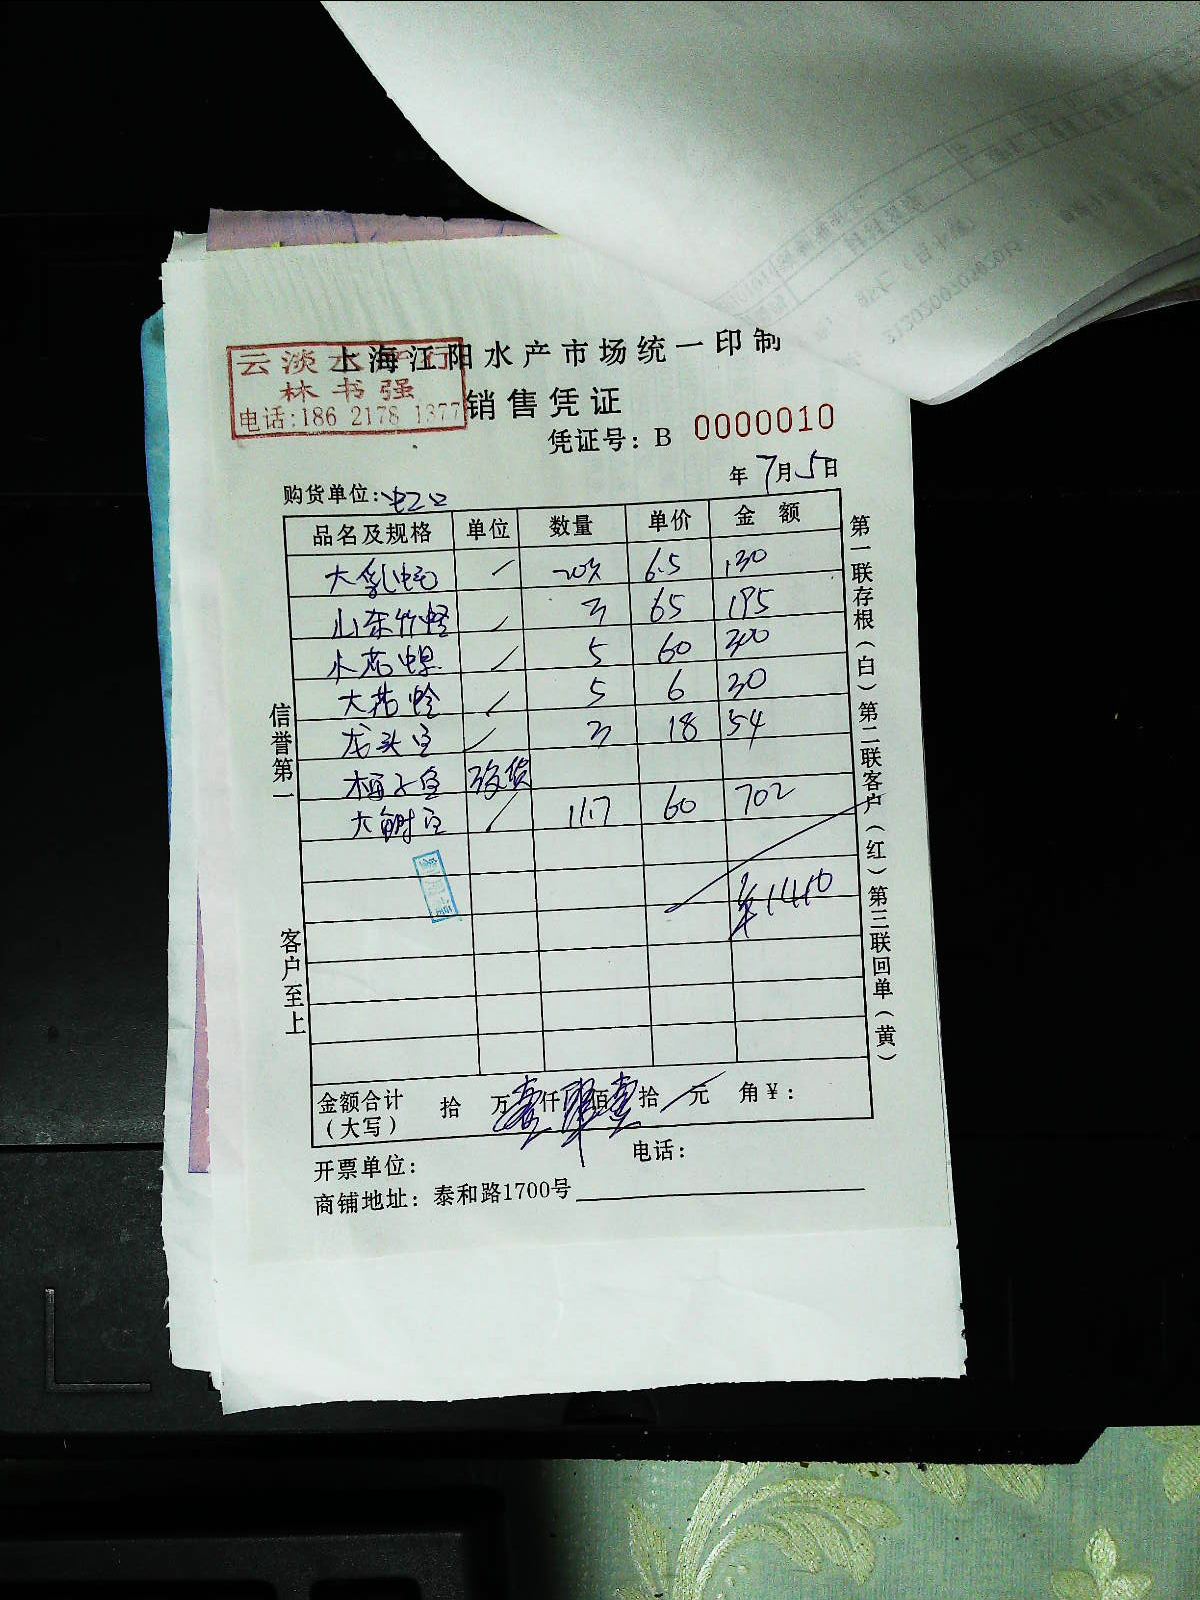 上海江阳水产市场统一印制
云淡水产行
林书强
电话:186 2178 1377
销售凭证
凭证号：B 0000010
年7月5日
购货单位:虹口
品名及规格 单位 数量 单价 金 额
大乳 20 6.5 130
山东竹蛏 3 65 195
小花螺 5 60 300
大花蛤 5 6 30
龙头 3 18 54
梅子鱼 改货
大 11.7 60 702
¥1410
信誉第一
客户至上
第一联存根（白）第二联客户（红）第三联回单（黄）
金额合计 拾 万壹仟肆佰壹拾 元 角¥：
（大写）
开票单位： 电话：
商铺地址：泰和路1700号